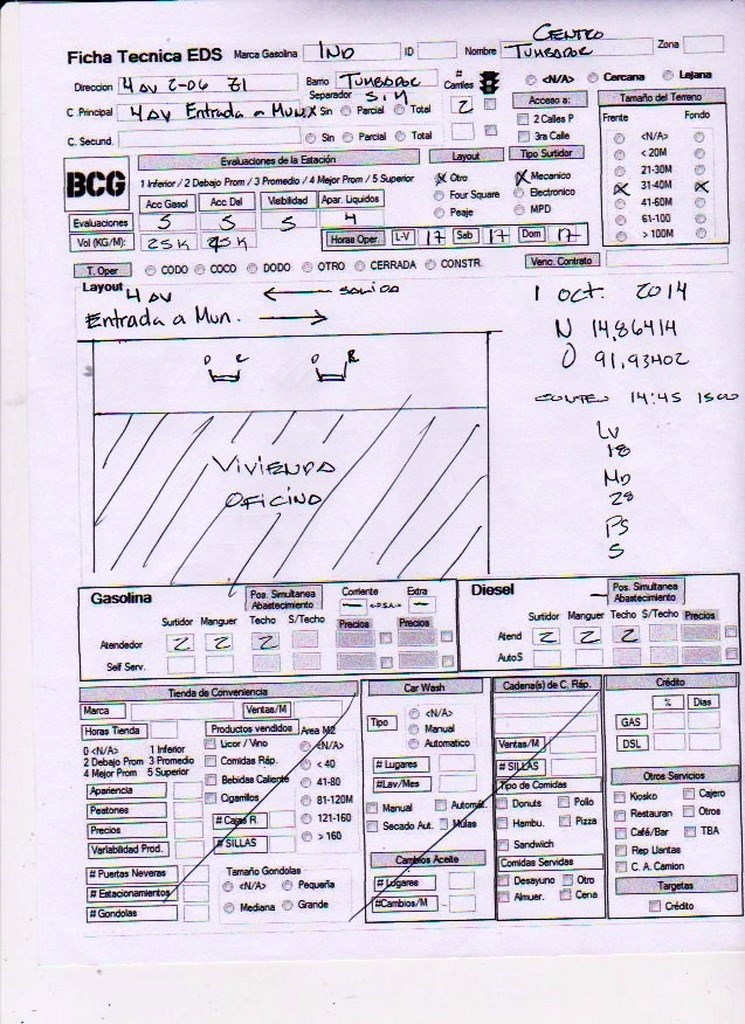 Ficha Tecnica EDS Marca Gasolina IND ID Nombre CENTRO TUMBADOR Zona
Direccion 4 AV 2-06 Z1 Barrio TUMBADOR # Carriles <N/A> Cercana Lejana
Separador S:M
C .Principal 4 AV Entrada a Mun. X Sin Parcial Total 2 Acceso a: Tamaño del Terreno
C. Secund. Sin Parcial Total 2 Calles P Frente Fondo
3ra Calle <N/A>
BCG Evaluaciones de la Estación Layout Tipo Surtidor < 20M
1 Inferior / 2 Debajo Prom / 3 Promedio / 4 Mejor Prom / 5 Superior X Otro X Mecanico 21-30M
Acc Gasol Acc Del Visibilidad Apar. Liquidos Four Square Electronico X 31-40M X
Evaluaciones 5 5 5 4 Peaje MPD 41-60M
61-100
Vol (KG/M): 25K 45K Horas Oper. L-V 17 Sab 17 Dom 17 > 100M
T. Oper CODO COCO DODO OTRO CERRADA CONSTR. Venc. Contrato
Layout 4 AV ← SALIDA
Entrada a Mun. →
1 OCT. 2014
N 14,86414
O 91,93402
CONTEO 14:45 1500
LV
18
MD
28
PS
5
D C D R
VIVIENDA
OFICINA
Gasolina Pos. Simultanea Abastecimiento Corriente Extra
— <-P.S.A.-> —
Surtidor Manguer Techo S/Techo Precios Precios
Atendedor 2 2 2
Self Serv.
Diesel Pos. Simultanea Abastecimiento
Surtidor Manguer Techo S/Techo Precios
Atend 2 2 2
AutoS
Tienda de Conveniencia
Marca Ventas/M
Horas Tienda Productos vendidos Area M2
0 <N/A> 1 Inferior Licor / Vino <N/A>
2 Debajo Prom 3 Promedio Comidas Ráp. < 40
4 Mejor Prom 5 Superior Bebidas Caliente 41-80
Apariencia Cigarrillos 81-120M
Peatones # Cajas R. 121-160
Precios # SILLAS > 160
Variabilidad Prod.
# Puertas Neveras Tamaño Gondolas
# Estacionamientos <N/A> Pequeña
# Gondolas Mediana Grande
Car Wash
Tipo <N/A>
Manual
Automatico
# Lugares
#Lav/Mes
Manual Automát.
Secado Aut. Mulas
Cambios Aceite
# Lugares
#Cambios/M
Cadena(s) de C. Ráp.
Ventas/M
# SILLAS
Tipo de Comidas
Donuts Pollo
Hambu. Pizza
Sandwich
Comidas Servidas
Desayuno Otro
Almuer. Cena
Crédito
% Dias
GAS
DSL
Otros Servicios
Kiosko Cajero
Restauran Otros
Café/Bar TBA
Rep Llantas
C. A. Camion
Targetas
Crédito